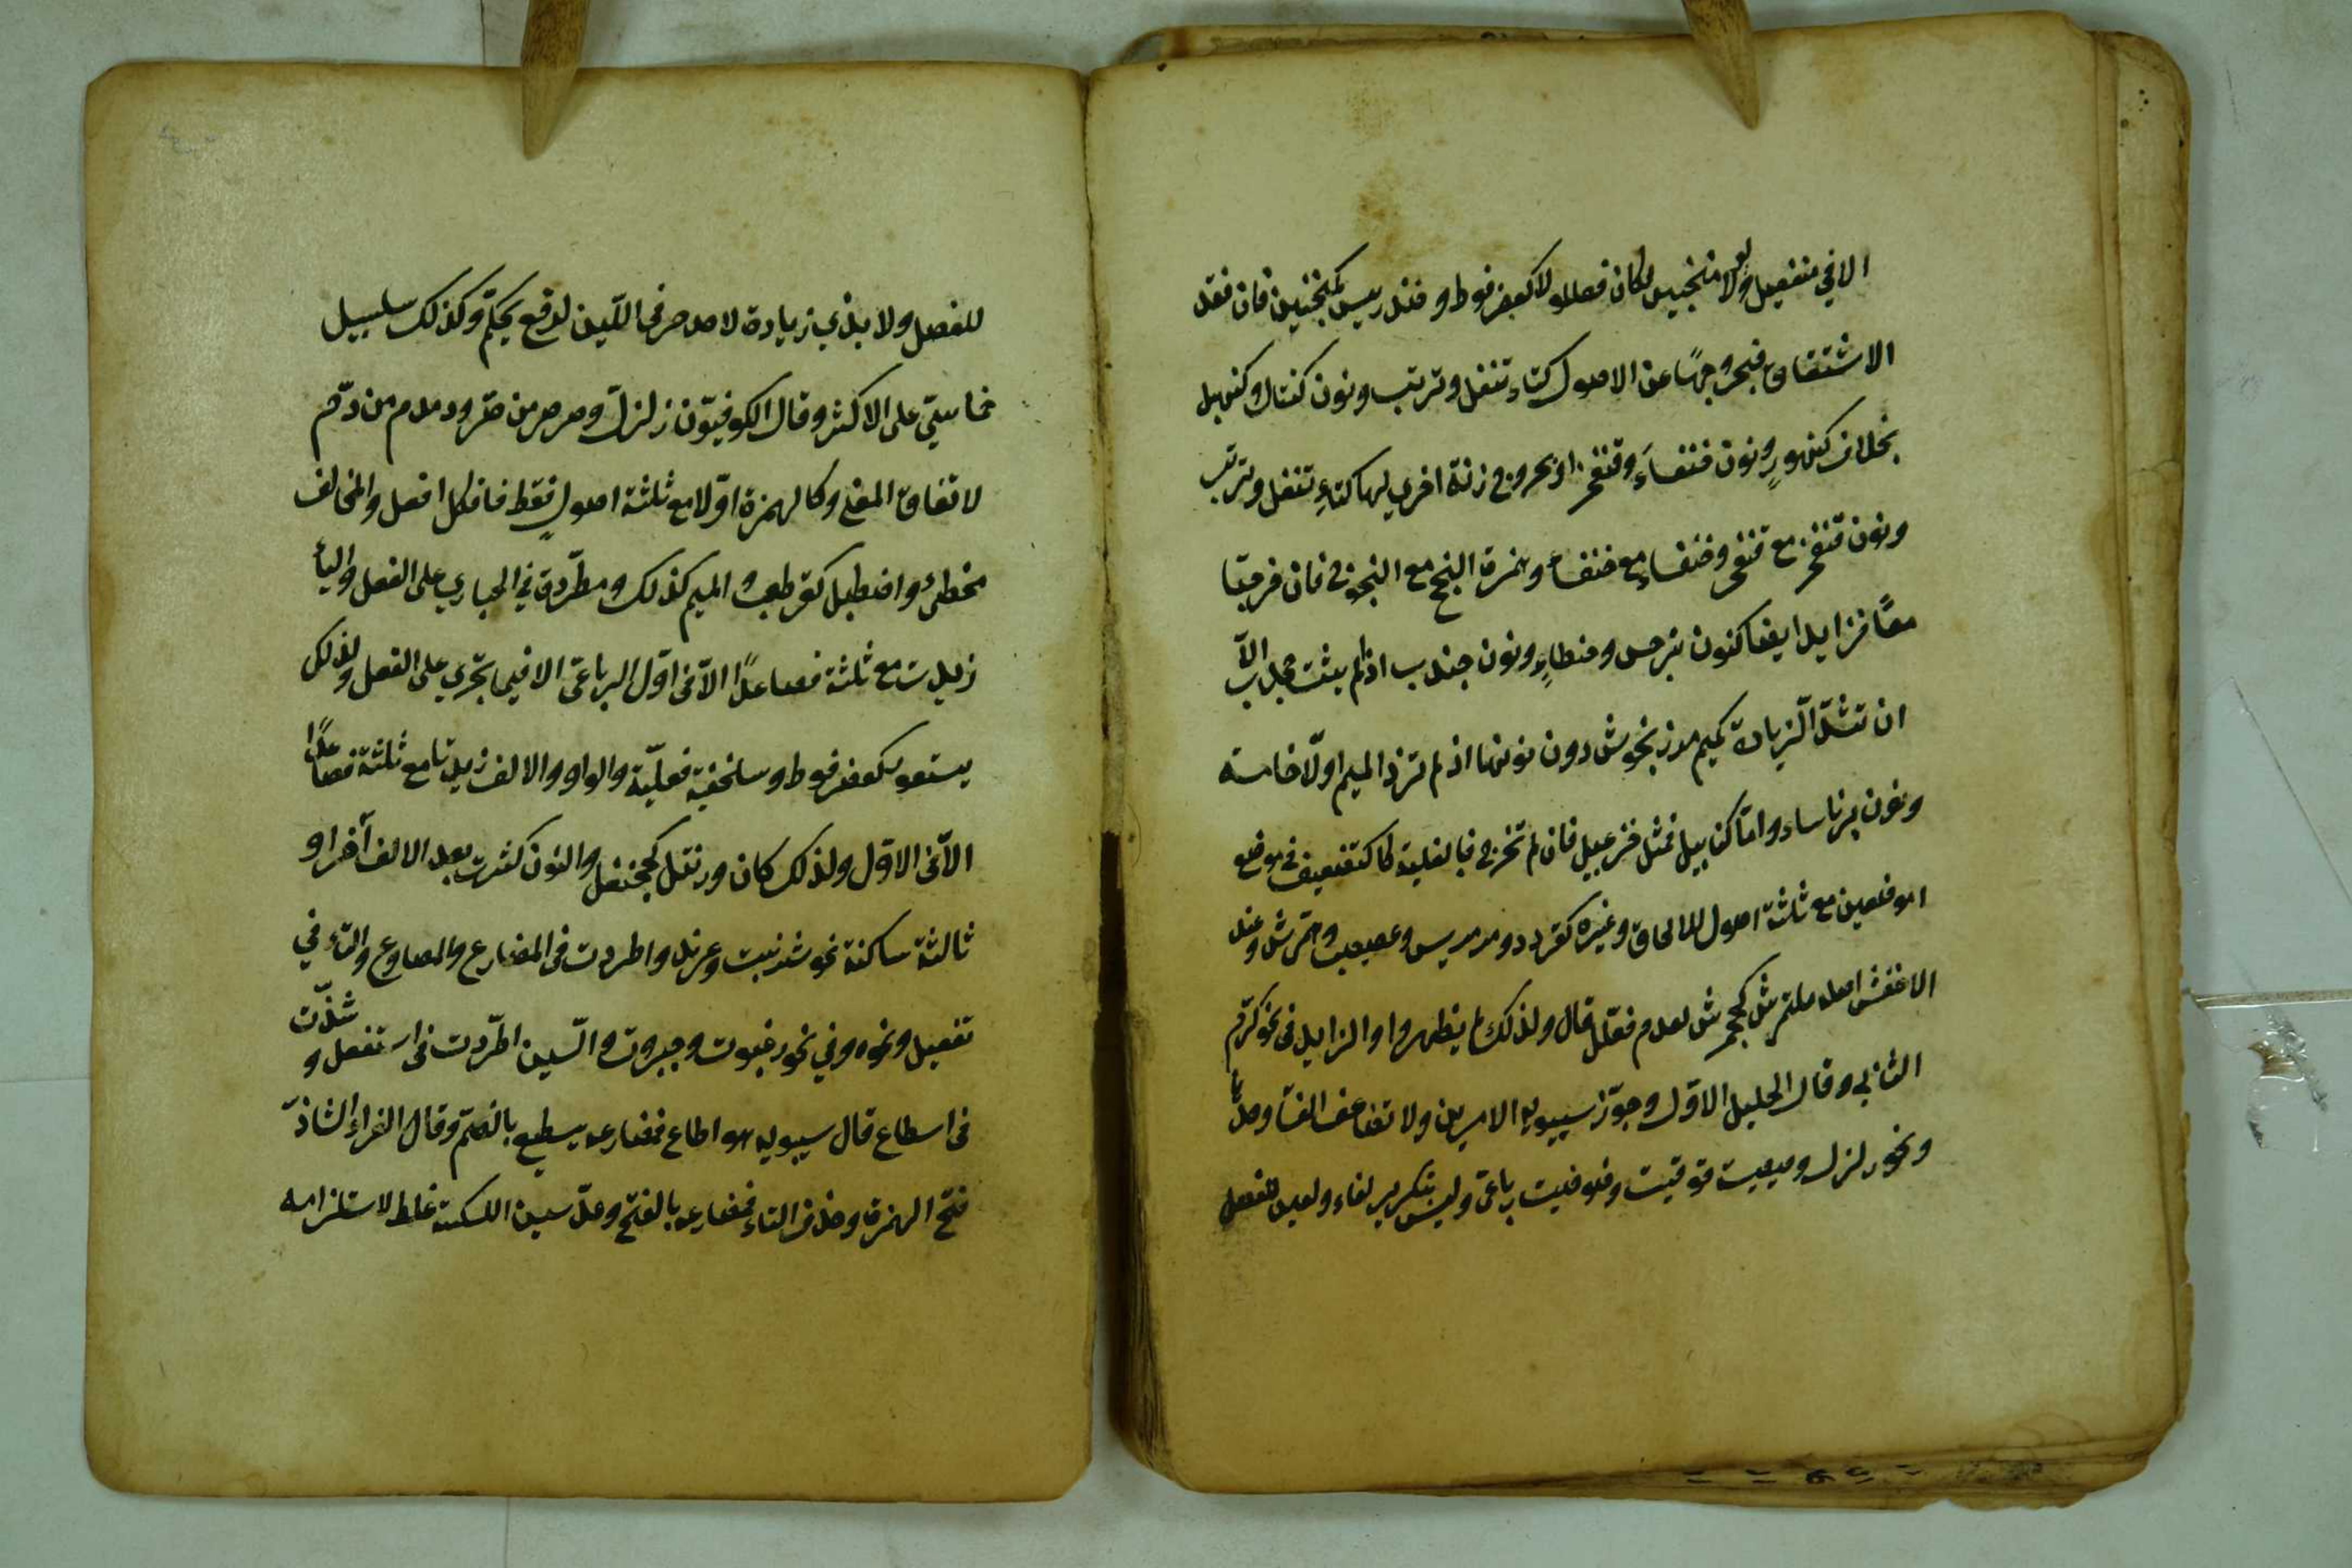 الا في منفعيل ولولا منجنيق لكان فعللولا كعضرفوط وخندريس كمنجنين فان فقد
الاشتقاق فبخروجها عن الاصول كتاء تتفل وترتب ونون كنتال وكنهبل
بخلاف كنهور ونون خنفساء وقنفخر او بخروج زنة اخرى لها كتاء تتفل وترتب
ونون قنفخر مع قنفخر وخنفساء مع خنفساء وهمزة النجج مع النجوج فان خرجتا
معا فزايد ايضا كنون نرجس وحنطاو ونون جندب اذا لم يثبت جخدب الا
ان تشذ الزيادة كميم مرزنجوش دون نونها اذ لم تزد الميم اولا خامسة
ونون برناساء واما كنابيل فمثل خزعبيل فان لم تخرج فبالغلبة كالتضعيف في موضع
او موضعين مع ثلثة اصول للالحاق وغيره كقردد ومرمريس وعصبصب وهمرش وعند
الاخفش اصله هنمرش كجحمرش لعدم فعلل قال ولذلك لم يظهروا والزايد في نحو كرم
الثاني وقال الخليل الاول وجوز سيبويه الامرين ولا تضاعف الفاء وحدها
ونحو زلزل وصيصيت وقوقيت وضوضيت رباعي وليس بتكرير لفاء ولعين للفصل
للفصل ولا بذي زيادة لاحد حرفي اللين لدفع التحكم وكذلك سلسبيل
خماسي على الاكثر وقال الكوفيون زلزل من زل وصرصر من صر ودمدم من دم
لاتفاق المعنى وكالهمزة اولا مع ثلثة اصول فقط فافكل افعل والمخالف
مخطئ واصطبل كقرطعب والميم كذلك ومطردة في الجاري على الفعل والياء
زيدت مع ثلثة فصاعدا الا في اول الرباعي الا فيما يجري على الفعل ولذلك
يستعور كعضرفوط وسلحفية فعلية والواو والالف زيدتا مع ثلثة فصاعدا
الا في الاول ولذلك كان ورنتل كجحنفل والنون كثرت بعد الالف آخرا و
ثالثة ساكنة نحو شرنبث وعرند واطردت في المضارع والمطاوع والتاء في
تفعيل ونحوه وفي نحو رغبوت وجبروت والسين اطردت في استفعل وشذت
في اسطاع قال سيبويه هو اطاع فمضارعه يسطيع بالضم وقال الفراء الشاذ
فتح الهمزة وحذف التاء فمضارعه بالفتح وعد سين الكسكسة غلط لاستلزامه